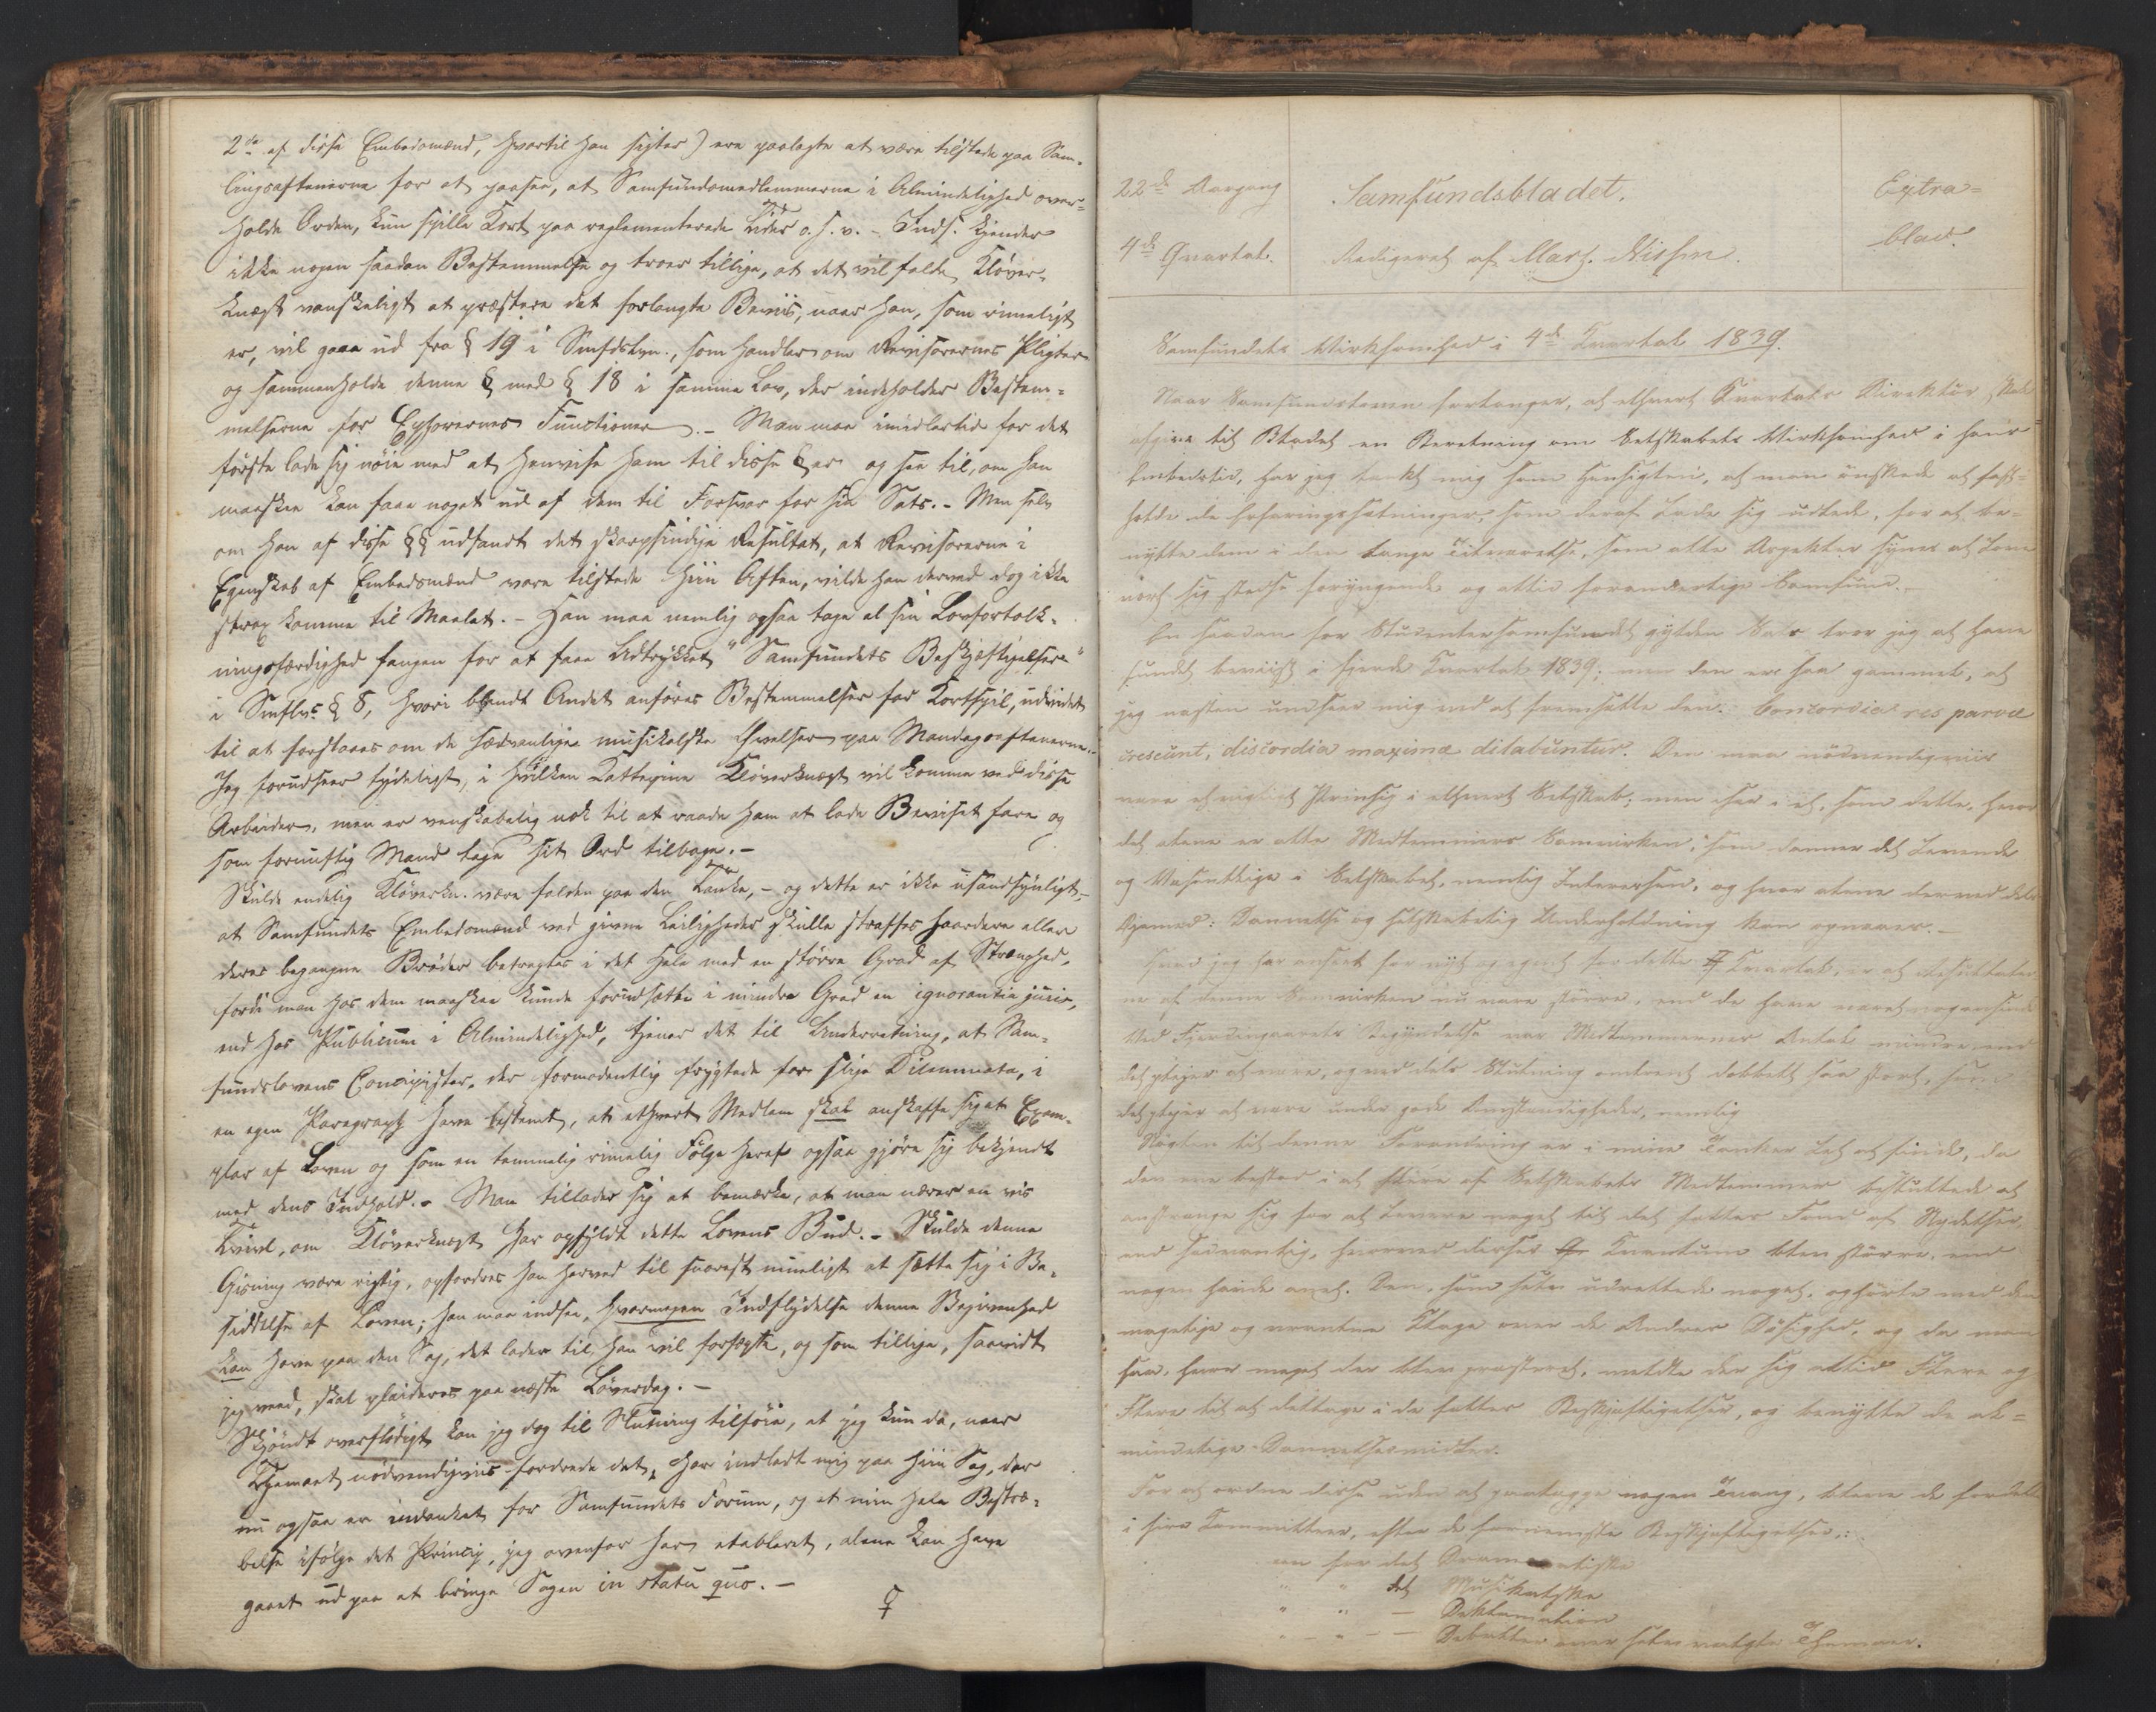 2de af disse Embedsmænd, hvortil han sigter) ere paalagte at være tilstede paa Sam-
lingsaftenerne for at paasee, at Samfundsmedlemmerne i Almindelighed over-
holde Orden, kun spille Kort paa reglementerede Tider o. s. v. - Inds. kjender
ikke nogen saadan Bestemmelse og troer tillige, at det vil falde Kløver-
knægt vanskeligt at præstere det forlangte Beviis, naar han, som rimeligt
er, vil gaae ud fra § 19 i Smfdslvn., som handler om Revisorernes Pligter
og sammenholde denne § med § 18 i samme Lov, der indeholder Bestem-
melserne for Ephorernes Functioner. - Man maa imidlertid for det
første lade sig nöie med at henvise ham til disse §er og see til, om han
maaskee kan faae noget ud af dem til Forsvar for sin Sats. - Men selv
om han af disse §§ udfandt det skarpsindige Resultat, at Revisorerne i
Egenskab af Embedsmænd vare tilstede hiin Aften, vilde han derved dog ikke
strax komme til Maalet. - Han maa nemlig ogsaa tage al sin Lovfortolk-
ningsfærdighed fangen for at faae Udtrykket "Samfundets Beskjæftigelser"
i Smflvs § 8, hvori blandt Andet anføres Bestemmelser for Kortspil, udvidet
til at forstaaes om de sædvanlige musikalske Øvelser paa Mandagsaftenerne. -
Jeg forudseer tydeligt, i hvilken Kattepine Kløverknægt vil komme ved disse
Arbeider, men er venskabelig nok til at raade ham at lade Beviset fare og
som fornuftig Mand tage sit Ord tilbage. -
Skulde endelig Kløverkn. være falden paa den Tanke, - og dette er ikke usandsynligt, -
at Samfundets Embedsmænd ved givne Leiligheder skulle straffes haardere eller
deres begangne Brøder betragtes i det Hele med en större Grad af Strenghed,
fordi man hos dem maaskee kunde forudsætte i mindre Grad en ignorantia juris,
end hos Publicum i Almindelighed, tjener det til Underretning, at Sam-
fundslovens Concipister, der formodentlig frygtede for slige Dilemmata, i
en egen Paragraph have bestemt, at ethvert Medlem skal anskaffe sig et Exem-
plar af Loven og som en temmelig rimelig Følge heraf ogsaa gjöre sig bekjendt
med dens Indhold. - Man tillader sig at bemærke, at man nærer en vis
Tvivl, om Kløverknægt har opfyldt dette Lovens Bud. - Skulde denne
Gisning være rigtig, opfordres han herved til snarest mueligt at sætte sig i Be-
siddelse af Loven; han maa indsee, hvormegen Indflydelse denne Begivenhed
kan have paa den Sag, det lader til han vil forfægte, og som tillige, saavidt
jeg veed, skal plaideres paa næste Løverdag. -
Skjöndt overflödigt kan jeg dog til Slutning tilföie, at jeg kun da, naar
Themaet nödvendigviis fordrede det, har indladt mig paa hiin Sag, der
nu ogsaa er indanket for Samfundets Forum, og at min hele Bestræ-
belse ifølge det Princip, jeg ovenfor har etableret, alene kan have
gaaet ud paa at bringe Sagen in statu quo. -
♀
22de Aargang
4de Qvartal.
Samfundsbladet.
Redigeret af Mart. Nissen.
Extra=
blad.
Samfundets Virksomhed i 4de Kvartal 1839.
Naar Samfundsloven forlanger, at ethvert Kvartals Direktör skal
afgive til Bladet en Beretning om Selskabets Virksomhed i hans
Embedstid, har jeg tænkt mig som Hensigten, at man önskede at fast-
holde de Erfaringssætninger, som deraf lade sig udlede, for at be-
nytte dem i den lange Tilværelse, som alle Aspekter synes at love
vort sig stedse foryngende og altid foranderlige Samfund. -
En saadan for Studentersamfundet gylden Sats tror jeg at have
fundet beviist i fjerde Kvartal 1839; men den er saa gammel, at
jeg næsten undseer mig ved at fremsætte den: Concordia res parvæ
crescunt, discordia maximæ dilabuntur. Den maa nödvendigviis
være et vigtigt Prinsip i ethvert Selskab; men især i et, som dette, hvor
det alene er alle Medlemmers Samvirken, som danner det Levende
og Væsentlige i Selskabet, nemlig Interessen, og hvor alene derved dets
Öjemed: Dannelse og selskabelig Underholdning kan opnaaes. -
Hvad jeg har anseet for nyt og egent for dette Kvartal, er at Resultater-
ne af denne Samvirken nu vare større, end de have været nogensinde
Ved Fjerdingaarets Begyndelse var Medlemmernes Antal mindre, end
det plejer at være, og ved dets Slutning omtrent dobbelt saa stort, som
det plejer at være under gode Omstændigheder, nemlig
Nöglen til denne Forandring er i mine Tanker let at finde, da
den ene bestod i at flere af Selskabets Medlemmer besluttede at
anstrenge sig for at levere noget til det fælles Fond af Nydelser,
end sædvanlig, hvorved disses Kvantum blev större, end
nogen havde anet. Den, som selv udrettede noget, ophörte med den
magelige og vrantne Klage over de Andres Dösighed, og da man
saa, hvor meget der blev præsteret, meldte der sig altid Flere og
Flere til at deltage i de fælles Beskjæftigelser, og benytte de al=
mindelige Dannelsesmidler.
For at ordne disse uden at paalægge nogen Tvang, bleve de fordelte
i fire Kommitteer, efter de fornemste Beskjæftigelser:
een for det Dramatiske
" " det Musikalske
" " - Deklamation
" - " - - Debatter over selvvalgte Themaer.